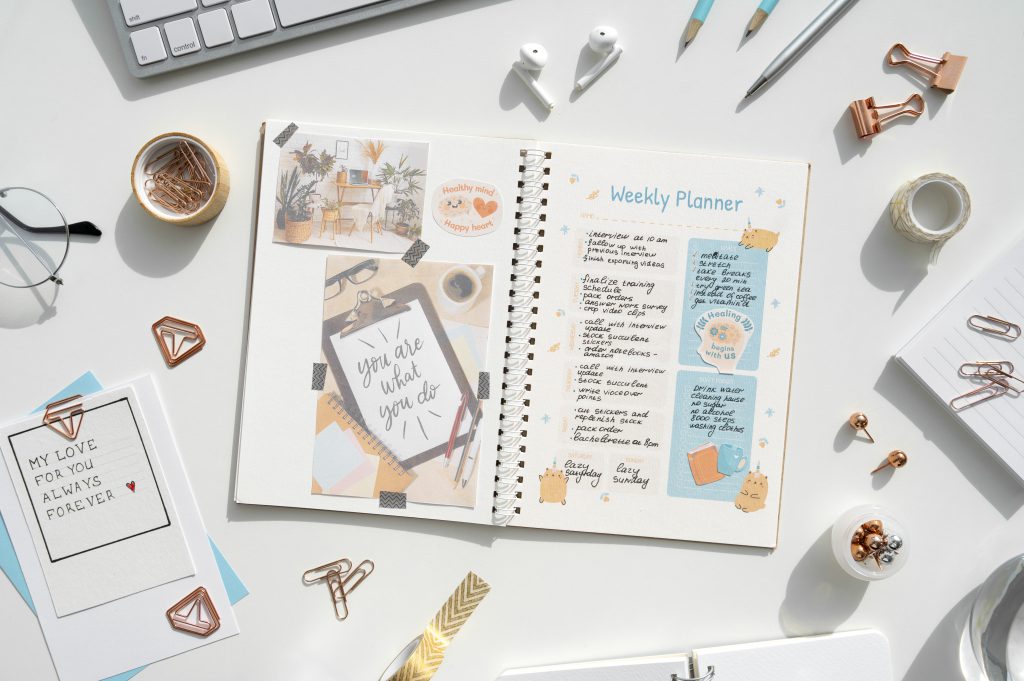 shift
fn
control
Healthy mind
Happy heart
you are
what
you do
MY LOVE
FOR YOU
ALWAYS
FOREVER
Weekly Planner
• interview at 10 am
• follow up with
previous interview
finish exporting videos
• finalize training
schedule
• pack orders
• answer work survey
• crop video clips
• call with interview
update
• stock succulent
stickers
• order notebooks -
amazon
• call with interview
update
• stock succulent
• write voiceover
points
• cut stickers and
replenish stock
• pack order
• bachelorette at 8pm
lazy
saturday
lazy
sunday
stretch
take breaks
every 20 min
try green tea
instead of coffee
Healing
begins
with us
DRINK WATER
CLEANING HOUSE
NO SUGAR
NO ALCOHOL
8000 STEPS
WASHING CLOTHES